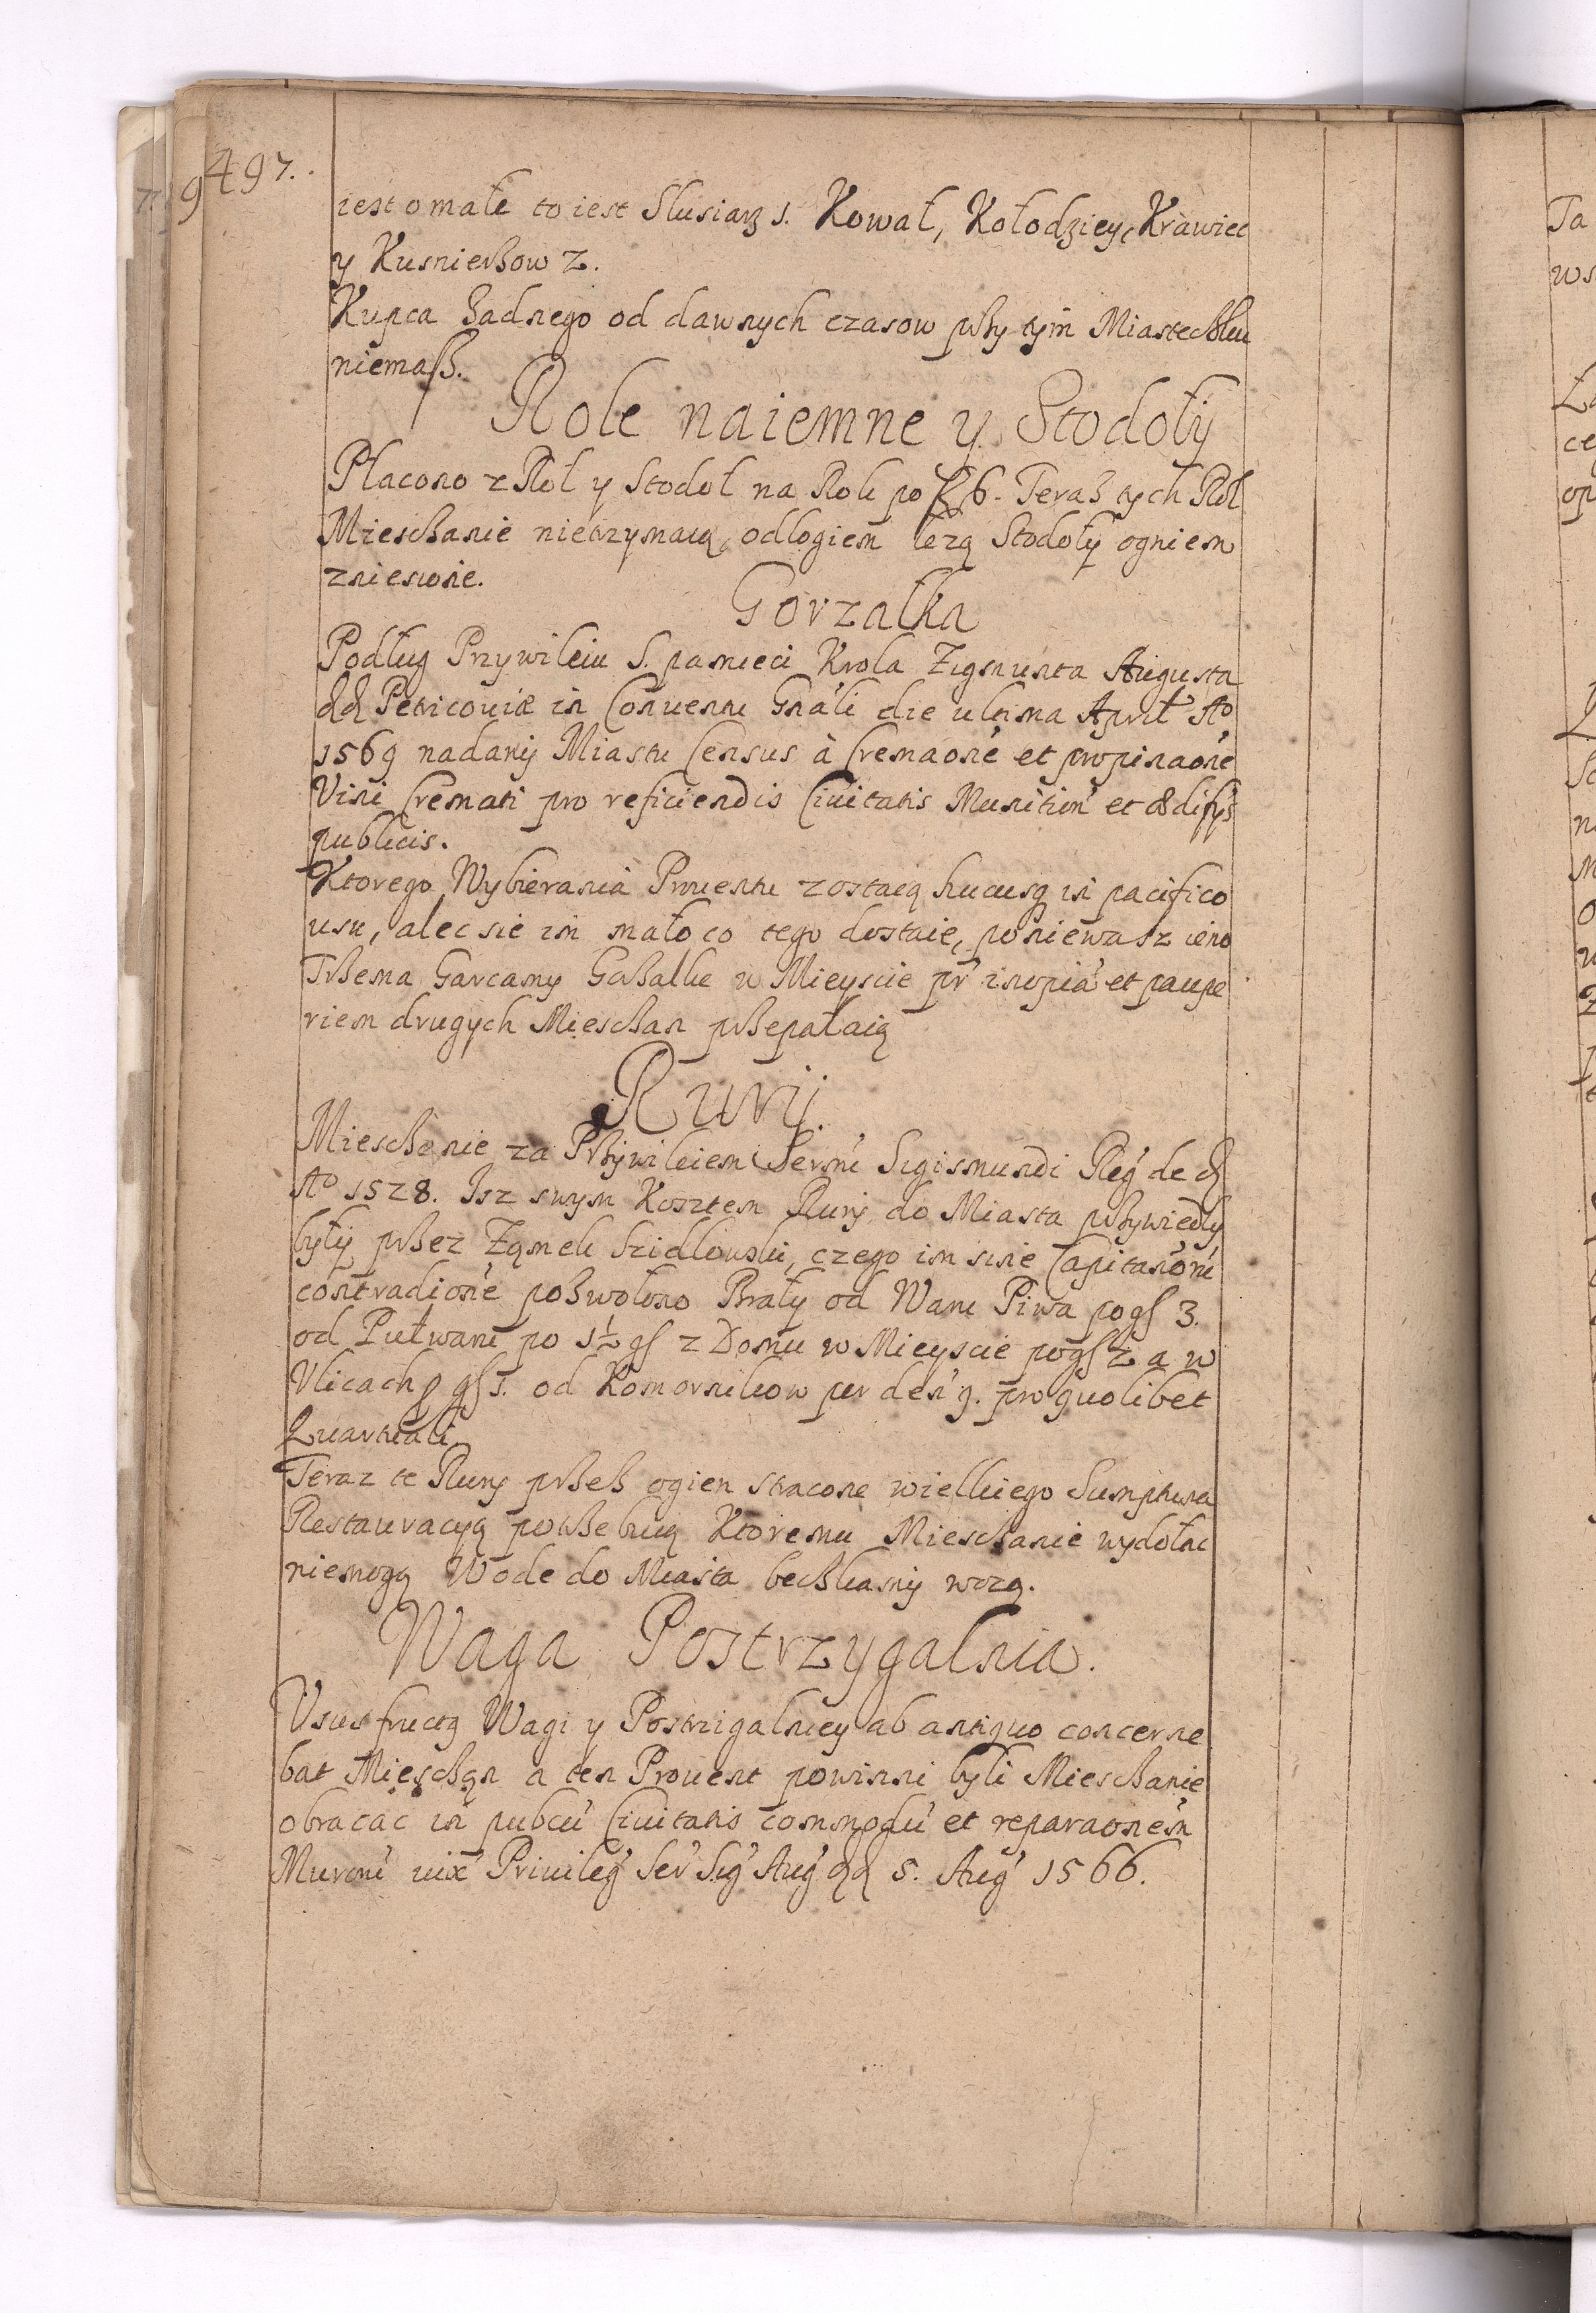 497.
iest o małe to iest Slusiarz 1. Kowal, Kołodziey, Krawiec
y Kusnierzow 2.
Kupca żadnego od dawnych czasow przy tym Miasteczku
niemasz.
Role naiemne y Stodoły
Płacono z Rol y Stodoł na Rok po 6. Teraz tych Rol
Mieszczanie nietrzymaią, odłogiem leżą Stodoły ogniem
zniesione.
Gorzałka
Podług Przywileiu S. pamieci Krola Zigmunta Augusta
dd Petricoviæ in Conventu Gnali die ultima April Ao
1569 nadany Miastu Census à Cremaone et propinaone
Vini Cremati pro reficiendis Civitatis Munition et ædifijs
publicis.
Ktorego Wybierania Prouentu zostaią hucusq in pacifico
usu, alec sie im mało co tego dostaie, poniewasz ieno
Trzema Garcamy Gorzałke w Mieyscie pr inopia et paupe
riem drugych Mieszczan przepałaią
Rury.
Mieszczanie za Przywileiem Sermi Sigismundi Reg de d
Ao 1528. Isz swym Kosztem Rury do Miasta przywiedly
były przez Zamek Szidłowski, czego im sine Capitanorum
contradione pozwolono Brały od Waru Piwa po gs 3.
od Pułwaru po 1½ gs z Domu w Mieyscie po gs 2 a w
Vlicach p gs 1. od Komornikow per den 9. pro quolibet
Quartuali
Teraz te Rury przez ogien stracone wielkiego Sumptu na
Restauracyą potrzebuią Ktoremu Mieszczanie wydołac
niemogą Wode do Miasta beczkamy wozą.
Waga Postrzygalnia.
Vsusfructq Wagi y Postrzigalniey ab antiquo concerne
bat Mieszczan a ten Prouent powinni byli Mieszczanie
obracac in pubcu Civitatis commodu et reparaonem
Muroru iuxa Privileg Ser Sig Aug dd 5. Aug 1566.